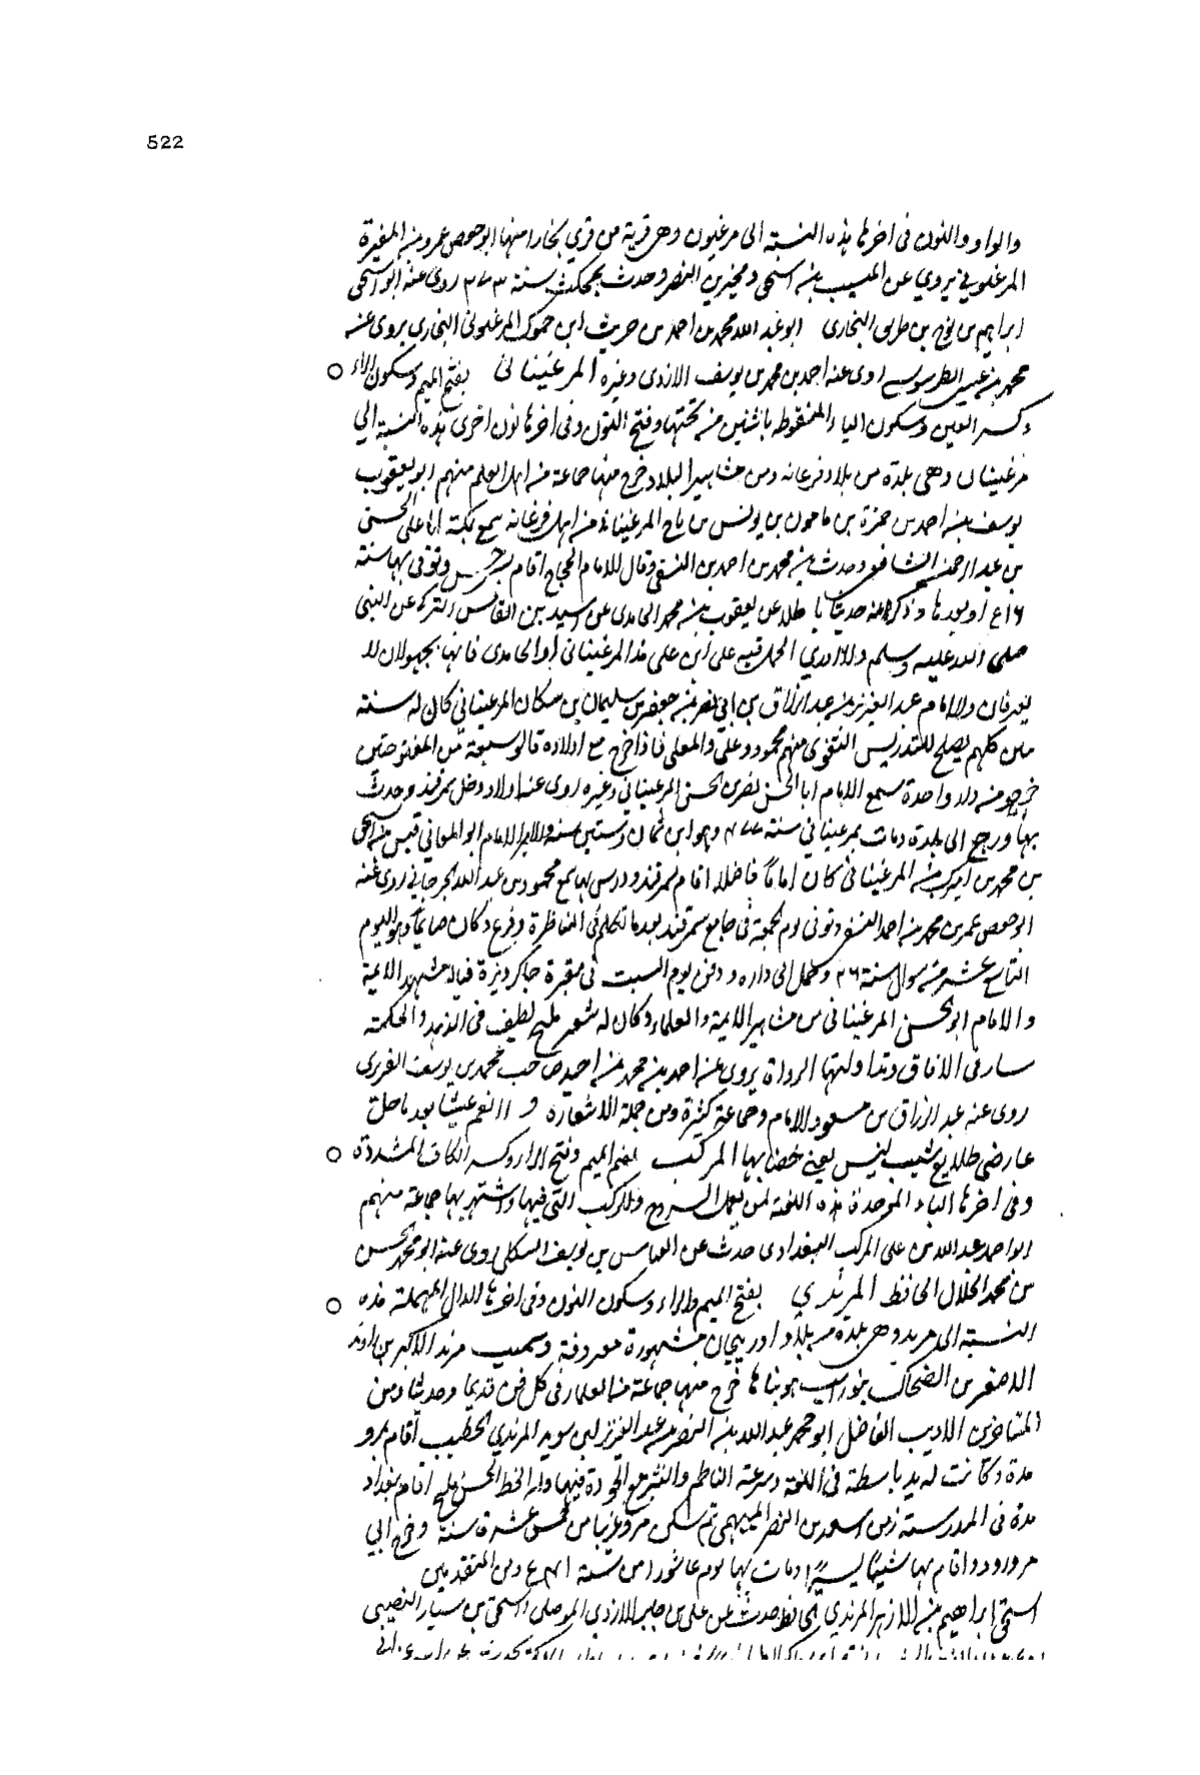 522
والواو والنون فى اخرها هذه النسبة الى مرغبون وهى قرية من قرى بخارا منها ابوحفص عمرو بن المغيرة
المرغبونى يروي عن المسيب بن اسحق و بحير بن النضر وحدث سنة ٢٧٣ روى عنه ابو اسحق
ابراهيم بن نوح بن طريف البخارى ابوعبد الله محمد بن احمد بن حريث ابن حموك المرغبونى البخارى يروى عنه
محمد بن عيسى الطرسوسى روى عنه احمد بن محمد بن يوسف الازدى وغيره المرغينانى بفتح الميم وسكون الراء
وكسر الغين وسكون الياء المنقوطة باثنتين من تحتها وفتح النون وفى اخرها نون اخرى هذه النسبة الي
مرغينان وهى بلدة من بلاد فرغانه ومن مشاهير البلاد خرج منها جماعة من اهل العلم منهم ابو يعقوب
يوسف بن احمد بن حمزة بن مامون بن يونس بن المرغينانى من اهل فرغانه سمع بمكة ابا على الحسن
بن عبد الرحمن الشافعى وحدث محمد بن احمد بن النسفى وقال الامام الحجاج اقام وتوفى بها سنة
او بعدها وذكر عنه حديثا عن يعقوب بن محمد الحامدى عن اسيد بن القاسم عن النبى
صلى الله عليه وسلم على ابن على هذا المرغينانى او الحامدى فانهما مجهولان لا
يعرفان والامام عبد العزيز بن عبد الرزاق بن ابي نصر بن جعفر بن سليمان بن المرغينانى كان له ستة
بنين كلهم يصلح للتدريس الفتوى منهم محمود وعلى والمعلى فاذا خرج مع اولاده قالوا سبعة من المفتين
خرجوا من دار واحدة سمع الامام ابا الحسن نصر بن الحسن المرغينانى وغيره روى عنه اولاده ودخل سمرقند وحدث
بها ورجع الى بلدة ومات بمرغينان سنة وهو ابن ثمان وستين سنة الامام ابو المعالى قيس بن اسحق
بن محمد بن اميرك المرغينانى كان اماما فاضلا اقام بسمرقند ودرس بها سمع محمود بن عبد الله الجرجانى روى عنه
ابوحفص عمر بن محمد بن احمد النسفى وتوفى يوم الجمعة فى جامع سمرقند بعد ما تكلم فى المناظرة وفرغ وكان صائما وهو اليوم
التاسع عشر من شوال سنة وحمل الى داره ودفن يوم السبت فى مقبرة جاكرديزة قبالة مشهد الايمة
والامام ابو الحسن المرغينانى من مشاهير الايمة والعلماء وكان له شعر مليح لطيف فى الزهد والحكمة
سار فى الافاق وتداولتها الرواة يروى عن احمد بن محمد بن احمد صاحب محمد بن يوسف الفربرى
روى عنه عبد الرزاق بن مسعود الامام وجماعة كثيرة ومن جملة الاشعاره و االنعم عيشا بعد ما حل
عارضى طلايع شيب ليس يغنى خضابها المركب بضم الميم وفتح الراء وكسر الكاف المشددة
وفى اخرها الباء الموحدة هذه اللفظة لمن يعمل السروج والمركب التى فيها واشتهر بها جماعة منهم
ابو احمد عبد الله بن على المركب البغدادى حدث عن العباس بن يوسف الشكلى روى عنه ابو محمد الحسن
بن محمد الخلال الحافظ المرندي بفتح الميم والراء وسكون النون وفى اخرها الدال المهملة هذه
النسبة الى مرند وهى بلدة من بلاد ادربيجان مشهورة معروفة وسميت مرند الاكبر بن
الاصغر بن الضحاك هو بناها خرج منها جماعة من العلماء فى كل فن قديما وحديثا ومن
المتاخرين الاديب الفاضل ابو محمد عبد الله بن النضر بن عبد العزيز بن سويد المرندي الخطيب اقام بمرو
مدة وكانت له يد باسطة فى اللغة وسرعة الناظم والنثر مع الجودة فيها وله الخط الحسن مليح اقام ببغداد
مدة فى المدرسة زمن اسعد بن النضر الميهنى ثم سكن مرو قريبا من خمس عشرة سنة وخرج الي
مرورود واقام بها شيئا يسيرا ومات بها يوم عاشورا من سنة ومن المتقدمين
اسحق ابراهيم بن الازهر المرندي الحافظ حدث عن على بن جابر الازدى الموصلى واسحق بن سيار النصيبى